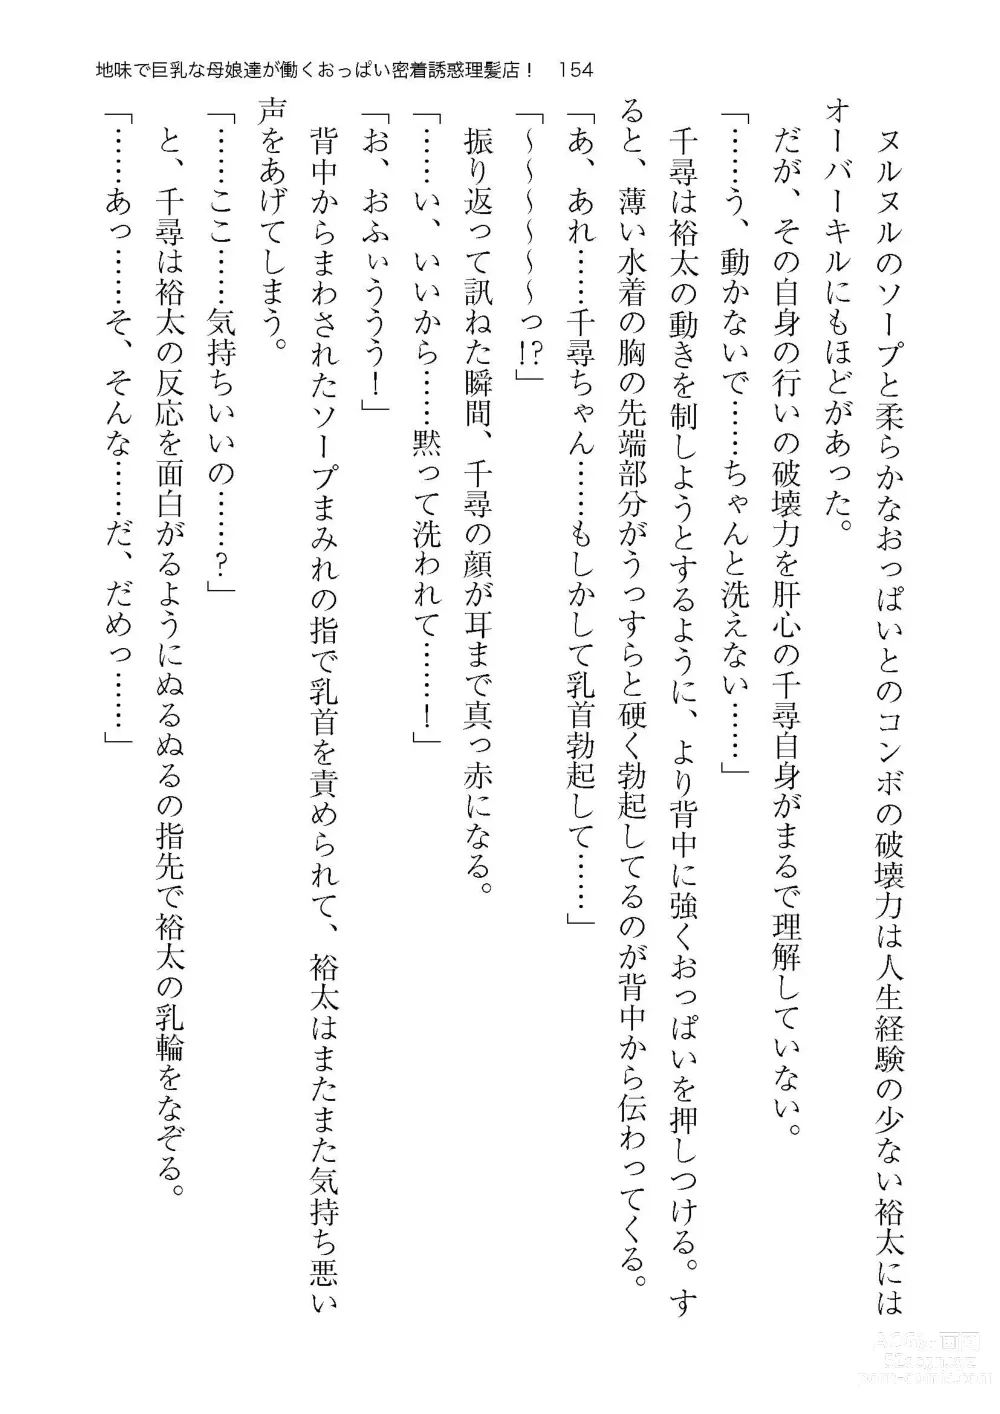 地味で巨乳な母娘達が働くおっぱい密着誘惑理髪店！　154
　ヌルヌルのソープと柔らかなおっぱいとのコンボの破壊力は人生経験の少ない裕太には
オーバーキルにもほどがあった。
　だが、その自身の行いの破壊力を肝心の千尋自身がまるで理解していない。
「……う、動かないで……ちゃんと洗えない……」
　千尋は裕太の動きを制しようとするように、より背中に強くおっぱいを押しつける。す
ると、薄い水着の胸の先端部分がうっすらと硬く勃起してるのが背中から伝わってくる。
「あ、あれ……千尋ちゃん……もしかして乳首勃起して……」
「～～～～～～っ!?」
　振り返って訊ねた瞬間、千尋の顔が耳まで真っ赤になる。
「……い、いいから……黙って洗われて……！」
「お、おふぅううう！」
　背中からまわされたソープまみれの指で乳首を責められて、裕太はまたまた気持ち悪い
声をあげてしまう。
「……ここ……気持ちいいの……？」
　と、千尋は裕太の反応を面白がるようにぬるぬるの指先で裕太の乳輪をなぞる。
「……あっ……そ、そんな……だ、だめっ……」
52acgn.xyz
porn-comic.com